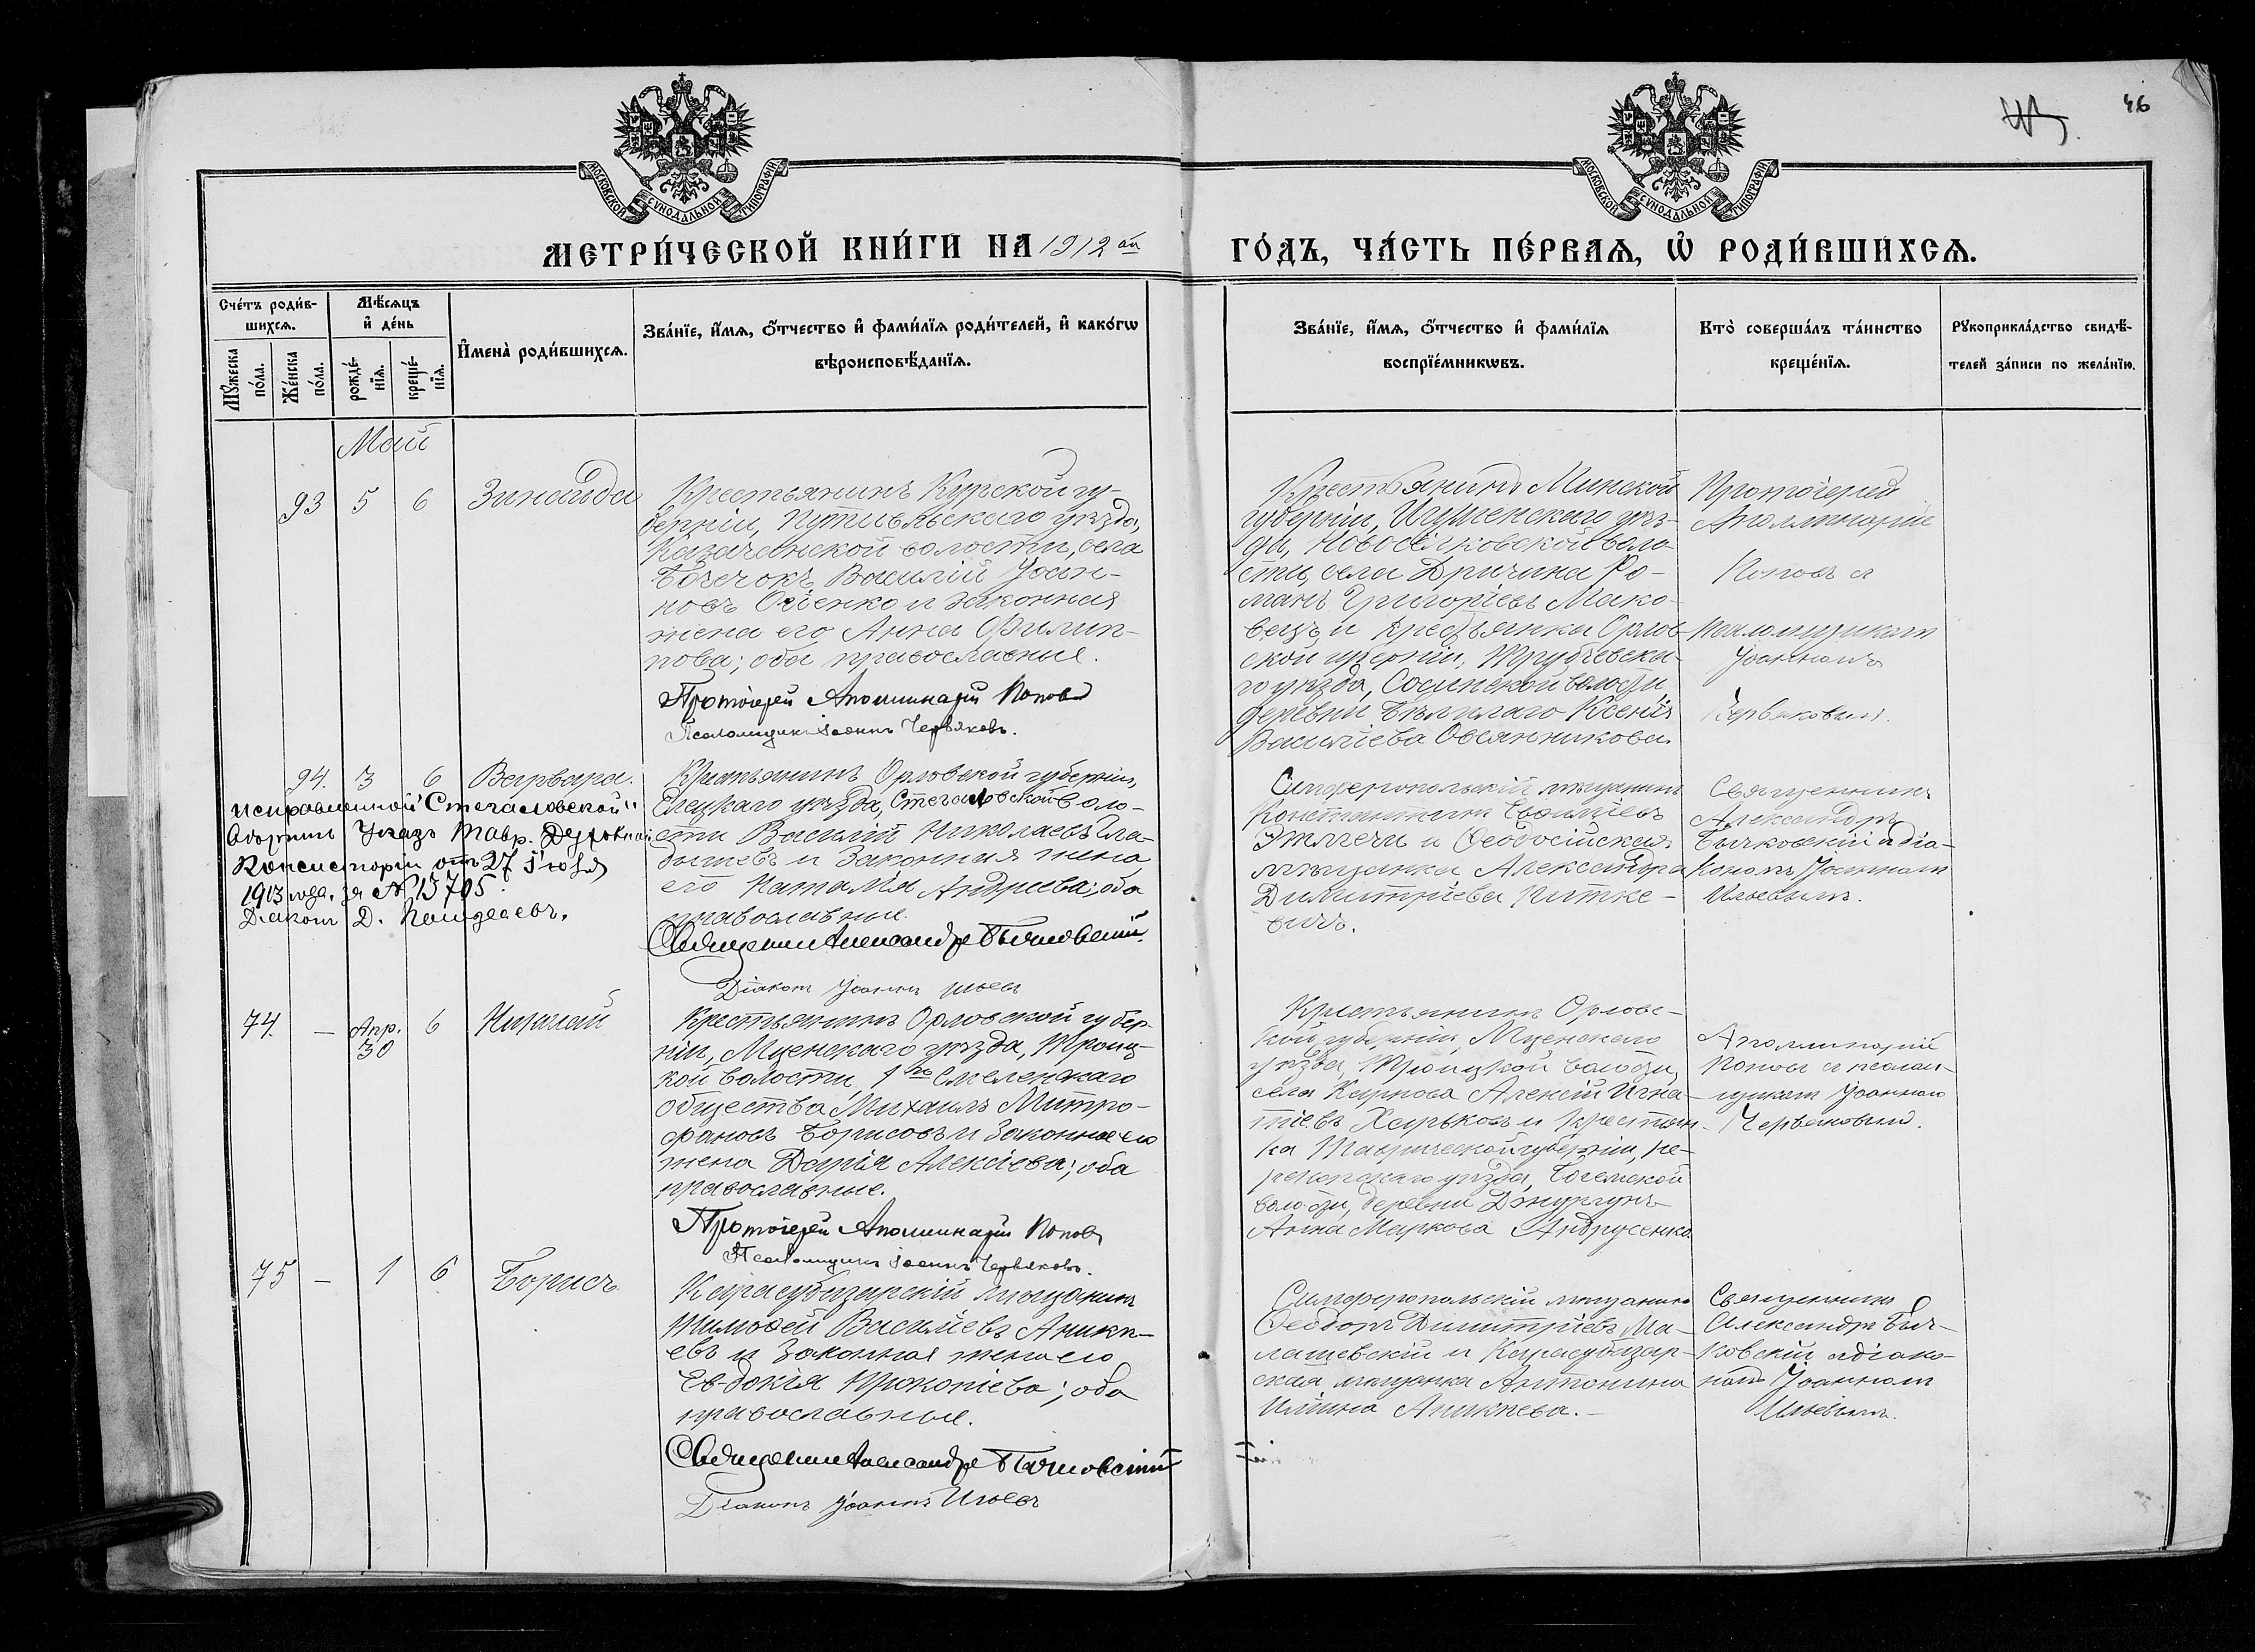 46
МОСКОВСКОЙ СѴНОДАЛЬНОЙ ТИПОГРАФІИ
МОСКОВСКОЙ СѴНОДАЛЬНОЙ ТИПОГРАФІИ
МЕТРИ́ЧЕСКОЙ КНИ́ГИ НА 1912 ый
ГО́ДЪ, ЧА́СТЬ ПЕ́РВАѦ, Ѡ҆ РОДИ́ВШИХСѦ.
Сче́тъ роди́в-
шихсѧ.
Мꙋ́жеска по́ла.
Же́нска по́ла.
Мѣ́сѧцъ
и҆ де́нь
рожде́-
нїѧ.
креще́-
нїѧ.
И҆мена̀ роди́вшихсѧ.
Зва́нїе, и҆́мѧ, ѻ҆́тчество и҆ фами́лїѧ роди́телей, и҆ како́гѡ
вѣроисповѣ́данїѧ.
Зва́нїе, и҆́мѧ, ѻ҆́тчество и҆ фами́лїѧ
воспрїе́мникѡвъ.
Кто̀ соверша́лъ та́инство
креще́нїѧ.
Рꙋкоприкла́дство свидѣ́-
телей за́писи по жела́нїю.
Май
93 5 6 Зинаида
Крестьянинъ Курской гу-
берніи, Путивльскаго уѣзда,
Казаченской волости, села
Бочечокъ Василій Іоан-
новъ Оченко и законная
жена его Анна Филип-
пова; оба православные.
Протоіерей Аполлинарій Поповъ
Псаломщикъ Іоаннъ Червяковъ.
Крестьянинъ Минской
губерніи, Игуменскаго уѣз-
да, Новоселковской воло-
сти, села Дричина Ро-
манъ Григоріевъ Мако-
вецъ и крестьянка Орлов-
ской губерніи, Трубчевска-
го уѣзда, Сосинской волости,
деревни Бѣлилаго Ксенія
Василіева Овсянникова.
Протоіерей
Аполлинарій
Поповъ съ
псаломщикомъ
Іоанномъ
Червяковымъ.
94. 3 6 Варвара.
исправленной "Стегаловской"
волости Указъ Тавр. Духовной
Консисторіи отъ 27 Іюля
1913 года. за № 15705.
Діаконъ Д.
Крестьянинъ Орловской губерніи,
Елецкаго уѣзда, Стегаловской воло-
сти Василій Николаевъ Гла-
дышевъ и законная жена
его Наталія Андреева; оба
православные.
Священникъ Александръ Бычковскій.
Діаконъ Іоаннъ Ильевъ
Симферопольскій мѣщанинъ
Константинъ
и Ѳеодосійская
мѣщанка Александра
Димитріева Питке-
вичъ.
Священникъ
Александръ
Бычковскій съ діа-
кономъ Іоанномъ
Ильевымъ.
74. — Апр. 30 6 Николай
Крестьянинъ Орловской губер-
ніи, Мценскаго уѣзда, Троиц-
кой волости, 1го Смеленскаго
общества Михаилъ Митро-
фановъ Борисовъ и законная его
жена Дарія Алексіева; оба
православные.
Протоіерей Аполлинарій Поповъ
Псаломщикъ Іоаннъ Червяковъ.
Крестьянинъ Орловс-
кой губерніи, Мценскаго
уѣзда, Троицкой волости,
села Алексій Игна-
тіевъ Харьковъ и крестьян-
ка Таврической губерніи, Пе-
рекопскаго уѣзда, Богемской
волости, деревни Джургунъ
Анна Маркова Андрусенко.
Аполлинарій
Поповъ съ псалом-
щикомъ Іоанномъ
Червяковымъ.
75 — 1 6 Борисъ.
Карасубазарскій мѣщанинъ
Тимоѳей Василіевъ Аникѣ-
евъ и законная жена его
Евдокія Прокопіева; оба
православные.
Священникъ Александръ Бычковскій
Діаконъ Іоаннъ Ильевъ
Симферопольскій мѣщанинъ
Ѳеодоръ Димитріевъ Ма-
лашевскій и Карасубазар-
ская мѣщанка Антонина
Ильина Аникѣева.—
Священникъ
Александръ Быч-
ковскій съ діако-
номъ Іоанномъ
Ильевымъ.